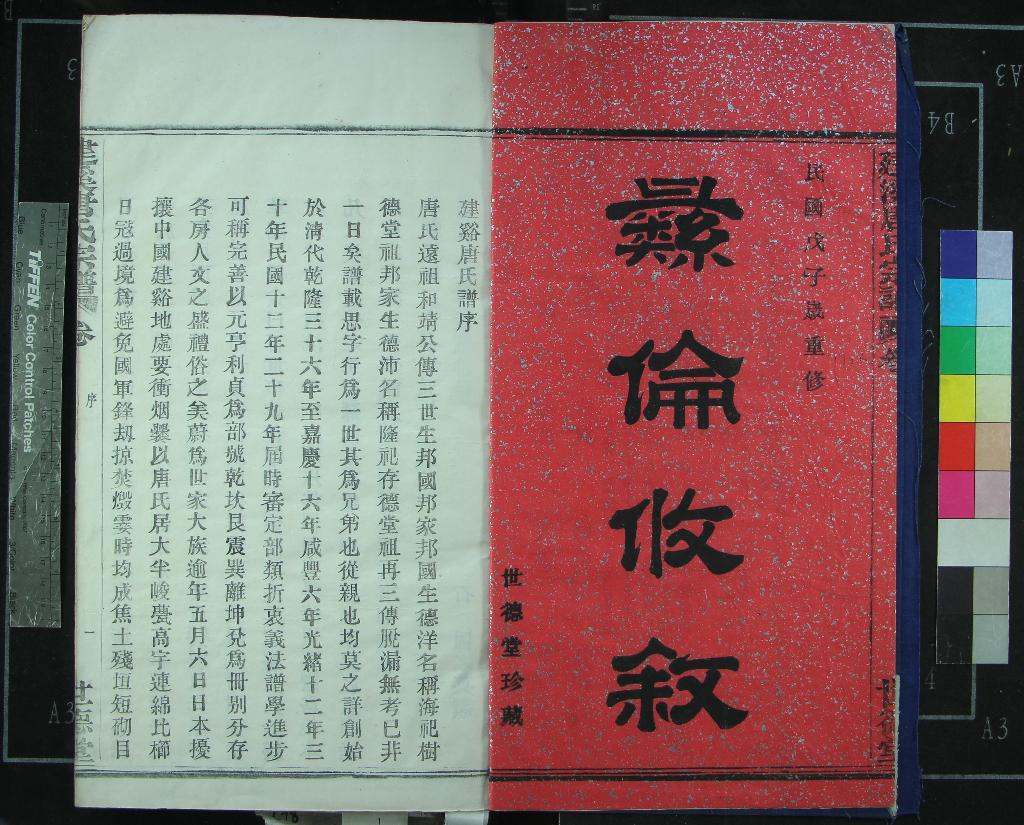 民國戊子歲重修
彝倫攸敘
世德堂珍藏
建谿唐氏譜序
唐氏遠祖和靖公傳三世生邦國邦家邦國生德洋名稱海祀樹
德堂祖邦家生德沛名稱隆祀存德堂祖再三傳脫漏無考已非
一日矣譜載思字行爲一世其爲兄弟也從親也均莫之詳創始
於清代乾隆三十六年至嘉慶十六年咸豐六年光緒十二年三
十年民國十二年二十九年届時審定部類折衷義法譜學進步
可稱完善以元亨利貞爲部號乾坎艮震巽離坤兌爲冊别分存
各房人文之盛禮俗之美蔚爲世家大族逾年五月六日日本擾
攘中國建谿地處要衝烟爨以唐氏居大半峻甍高宇連綿比櫛
日冦過境爲避免國軍鋒刼掠焚燬霎時均成焦土殘垣短砌目
序
一
世德堂
TIFFEN Color Control Patches
B4
A3